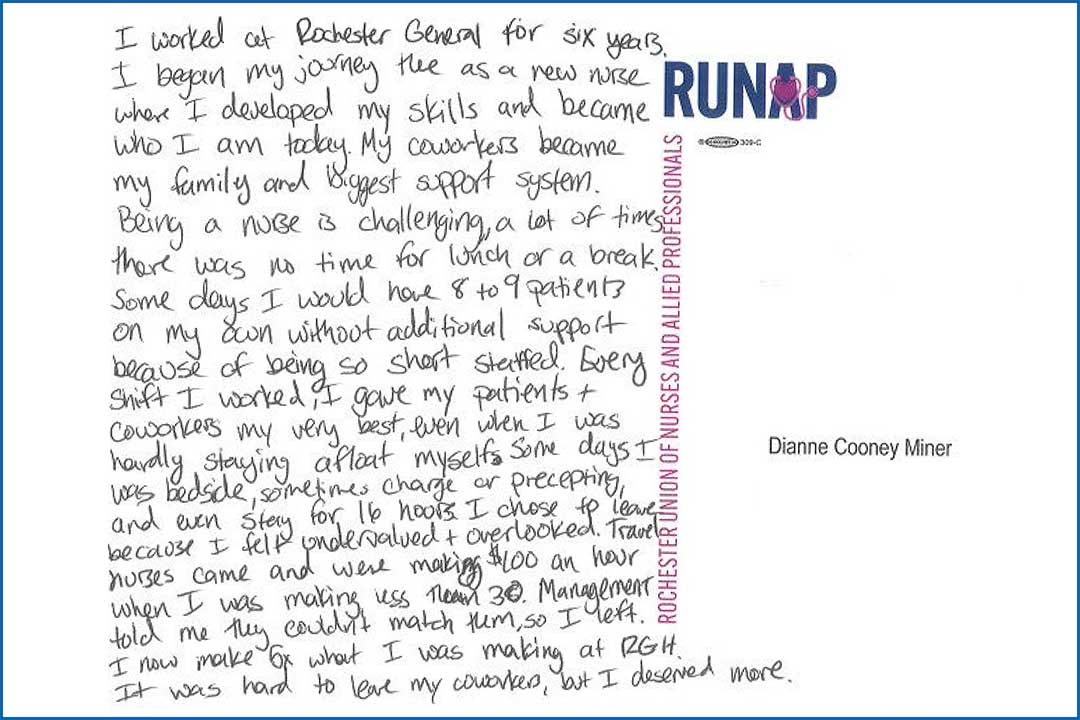 I worked at Rochester General for six years.
I began my journey thee as a new nurse
where I developed my skills and became
who I am today. My coworkers became
my family and biggest support system.
Being a nurse is challenging, a lot of times
there was no time for lunch or a break.
Some days I would have 8 to 9 patients
on my own without additional support
because of being so short staffed. Every
shift I worked, I gave my patients +
coworkers my very best, even when I was
hardly staying afloat myself. Some days I
was bedside, sometimes charge or precepting,
and even stay for 16 hours. I chose to leave
because I felt undervalued + overlooked. Travel
nurses came and were making $100 an hour
when I was making less than 30. Management
told me they couldn't match them, so I left.
I now make 6x what I was making at RGH.
It was hard to leave my coworkers, but I deserved more.
RUNAP
309-C
ROCHESTER UNION OF NURSES AND ALLIED PROFESSIONALS
Dianne Cooney Miner